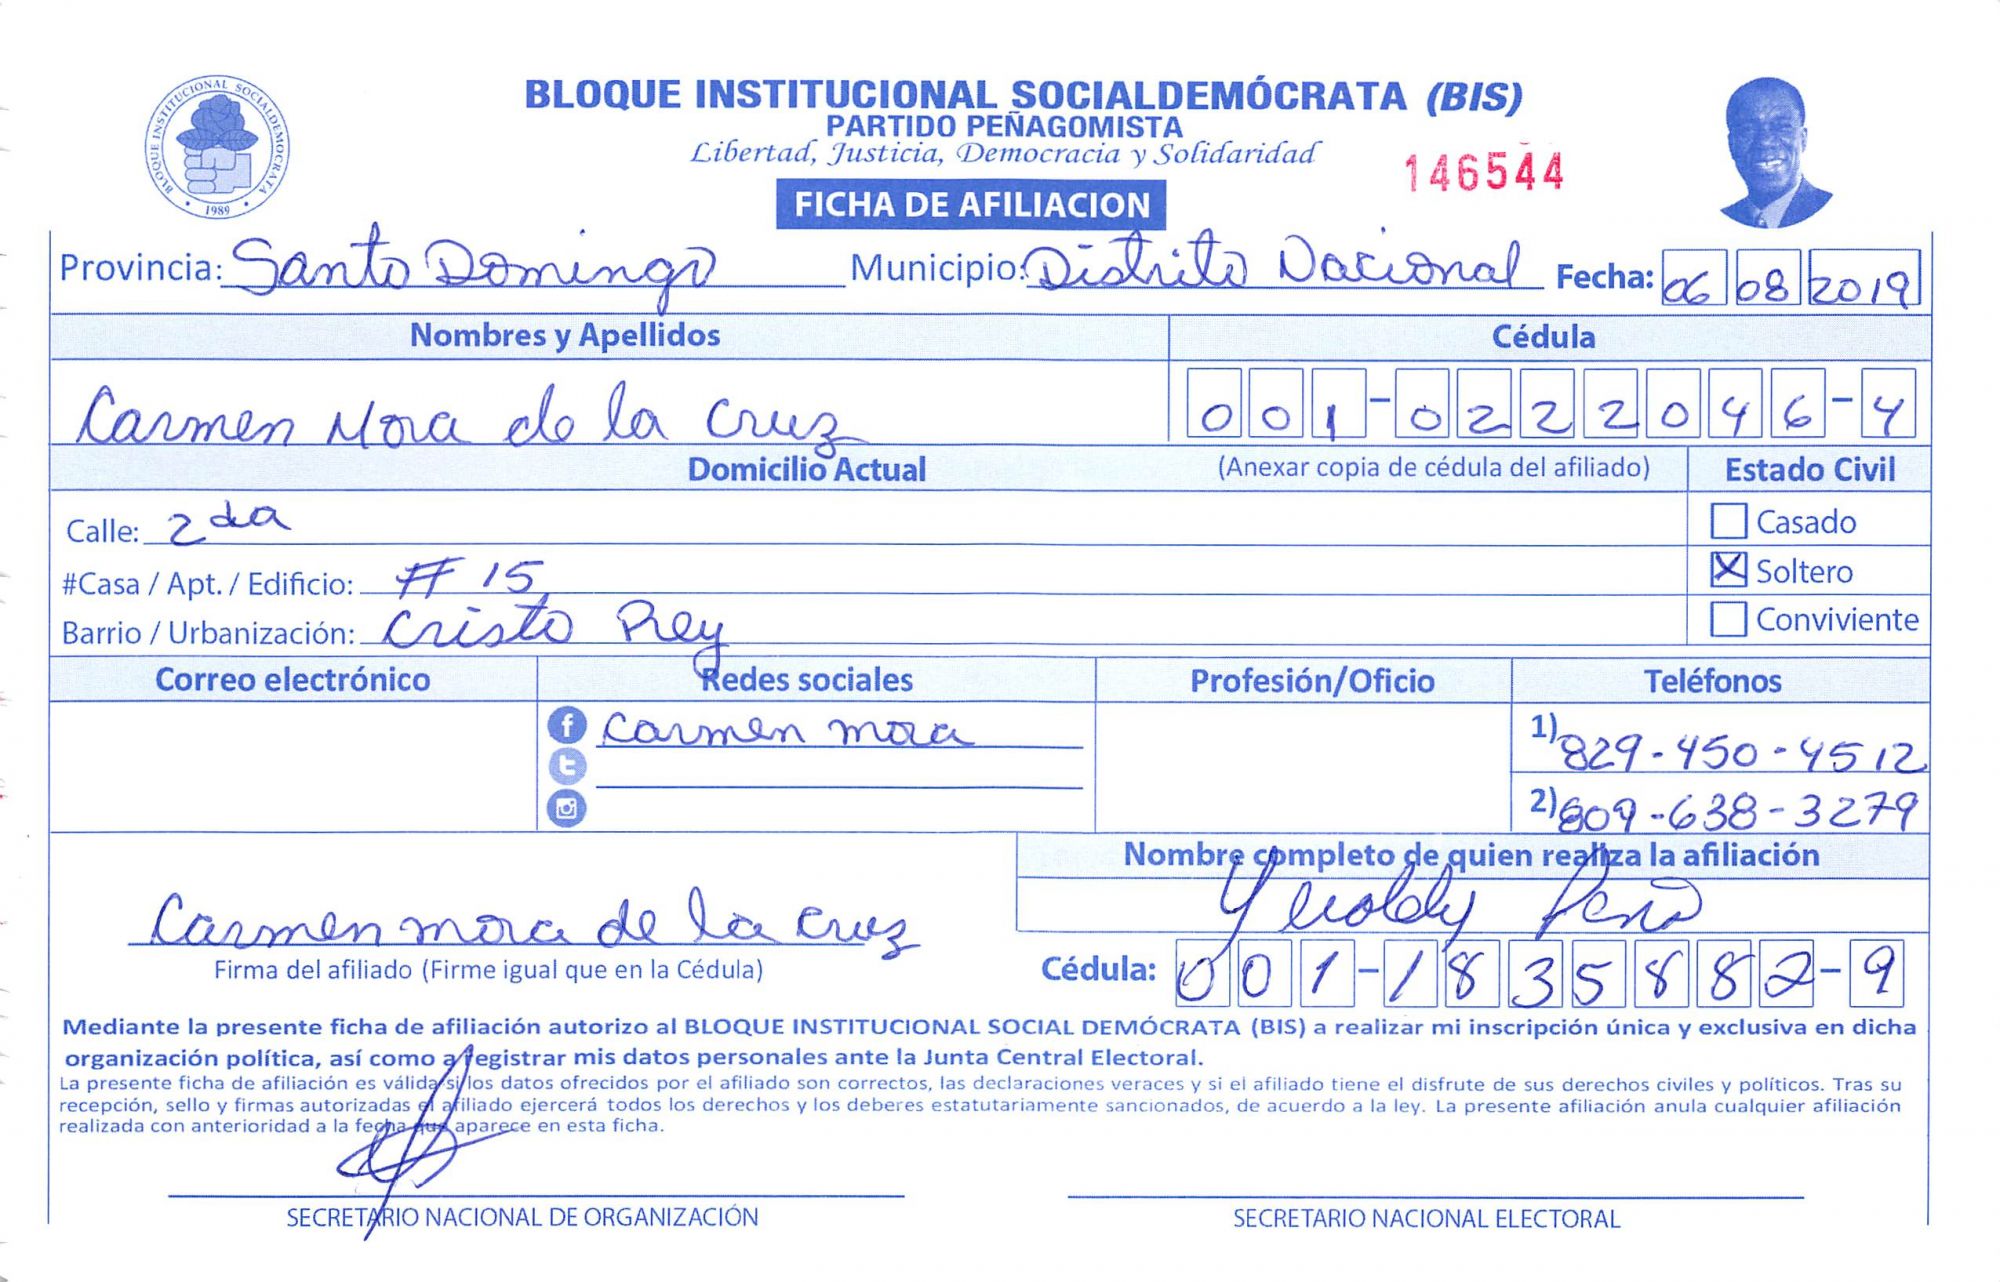 BLOQUE INSTITUCIONAL SOCIALDEMÓCRATA (BIS)
PARTIDO PEÑAGOMISTA
Libertad, Justicia, Democracia y Solidaridad
146544
FICHA DE AFILIACION
BLOQUE INSTITUCIONAL SOCIALDEMOCRATA
1989
Provincia: Santo Domingo Municipio: Distrito Nacional Fecha: 06 08 2019
Nombres y Apellidos Cédula
Carmen Mora de la Cruz 001-0222046-4
Domicilio Actual (Anexar copia de cédula del afiliado) Estado Civil
Calle: 2da Casado
#Casa / Apt. / Edificio: # 15 X Soltero
Barrio / Urbanización: Cristo Rey Conviviente
Correo electrónico Redes sociales Profesión/Oficio Teléfonos
Carmen mora 1) 829-450-4512
2) 809-638-3279
Nombre completo de quien realiza la afiliación
Peña
Carmen mora de la Cruz
Firma del afiliado (Firme igual que en la Cédula) Cédula: 001-1835882-9
Mediante la presente ficha de afiliación autorizo al BLOQUE INSTITUCIONAL SOCIAL DEMÓCRATA (BIS) a realizar mi inscripción única y exclusiva en dicha
organización política, así como a registrar mis datos personales ante la Junta Central Electoral.
La presente ficha de afiliación es válida si los datos ofrecidos por el afiliado son correctos, las declaraciones veraces y si el afiliado tiene el disfrute de sus derechos civiles y políticos. Tras su
recepción, sello y firmas autorizadas el afiliado ejercerá todos los derechos y los deberes estatutariamente sancionados, de acuerdo a la ley. La presente afiliación anula cualquier afiliación
realizada con anterioridad a la fecha que aparece en esta ficha.
SECRETARIO NACIONAL DE ORGANIZACIÓN SECRETARIO NACIONAL ELECTORAL